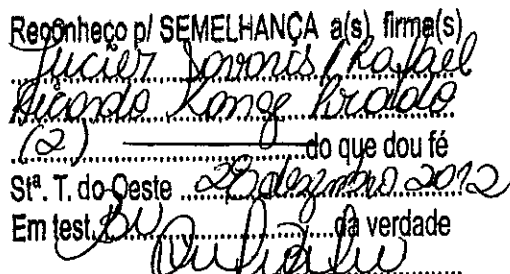 Reconheço p/ SEMELHANÇA a(s) firma(s)
Jucier Savaris / Rafael
Ricardo
(2) do que dou fé
Stª. T. do Oeste 28 dezembro 2012
Em test. da verdade